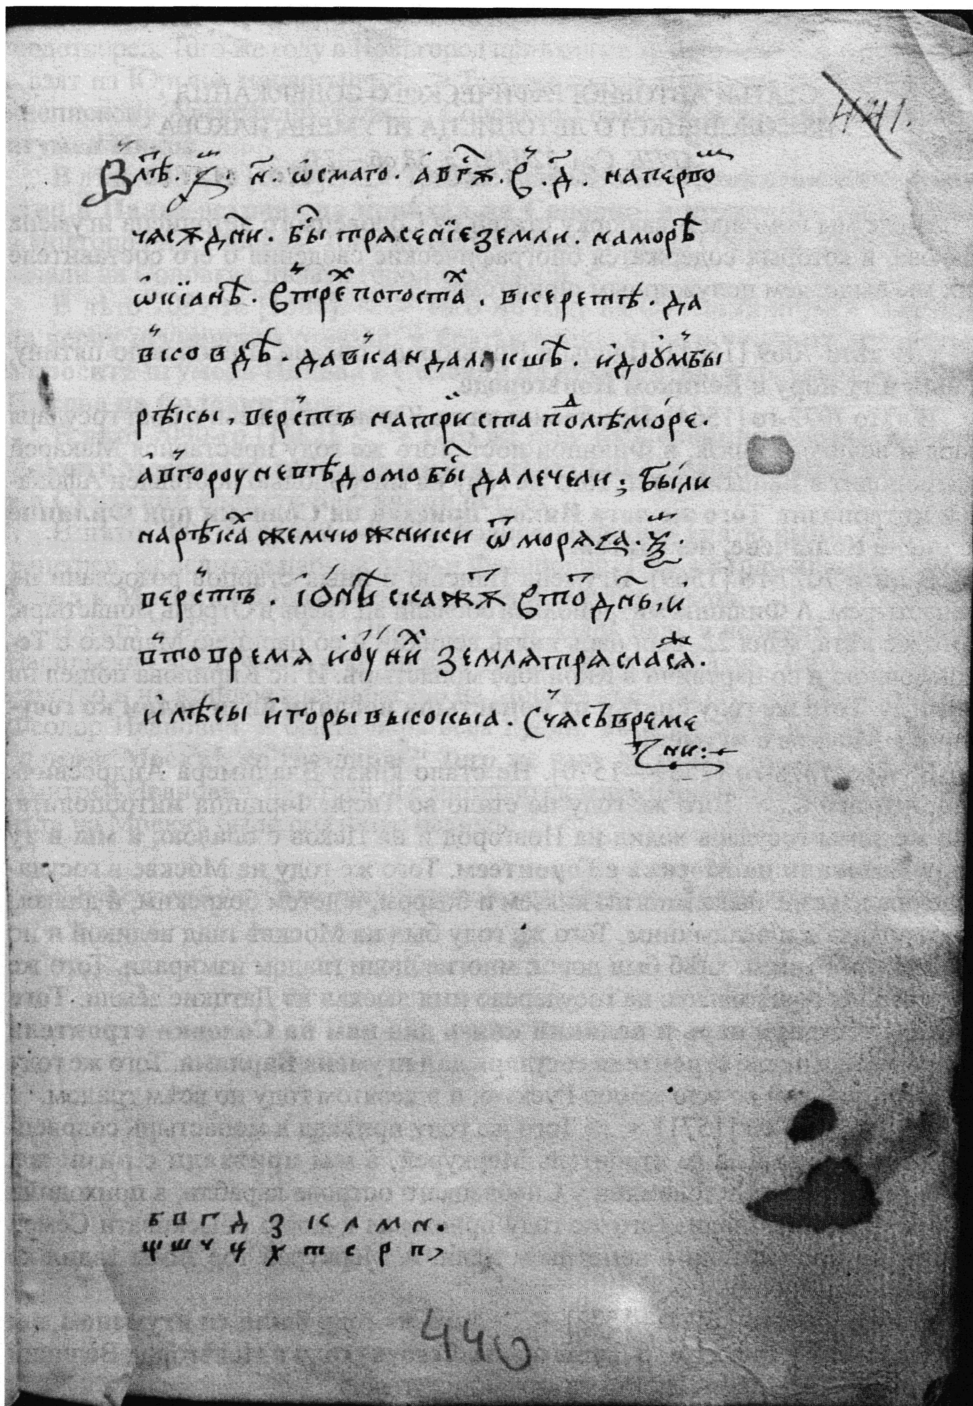 441.
В лѣт. ҂з҃. н҃. ѡсмаго. авгꙋ҃. є҃. д҃н. на первⷨо
часѫ дн҃и. бы трясенїе земли. на морѣ
ѡкїанѣ. в трех погостах. в кереттѣ. да
в ковдѣ. да в кандалакшѣ. и до оумбы
рѣкы. верстъ на триста подлѣ море.
а в гороу невѣдомо бы далече ли; были
на рѣках жемчюжники ѿ моря за. ѯ҃.
верстъ. ї ѻнѣ скажют в тод днь, и
в то время и оу них земля тряслася.
и лѣсы и горы высокыа. С часъ време
ни:
б в г д з к л м н.
щ ш ч ц х т с р п,
440